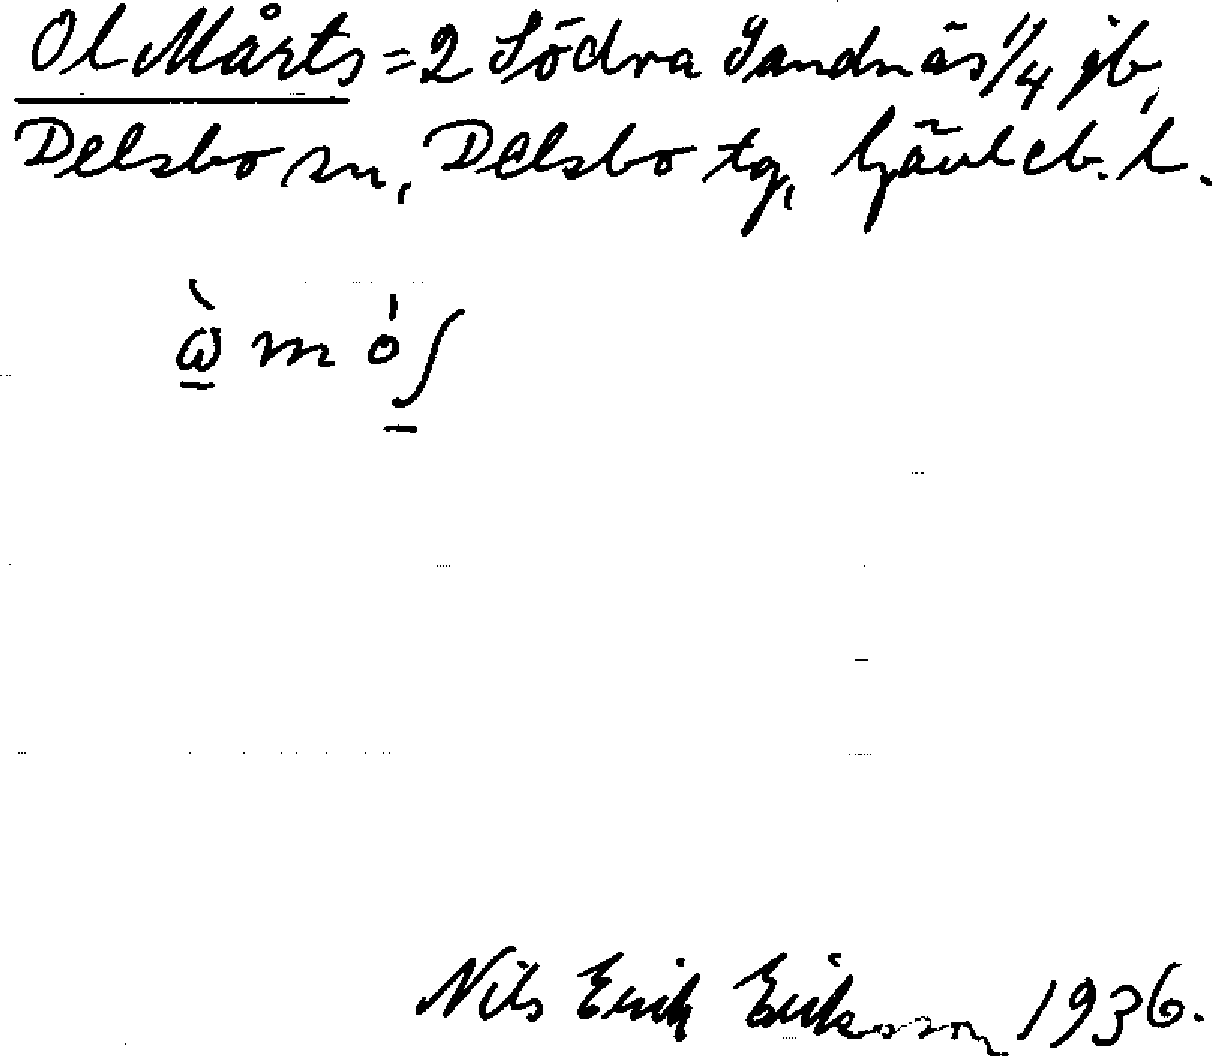 Ol Mårts = 2 Södra Sandnäs 1/4 jb,
Delsbo sn, Delsbo tg, Gävleb. l.
Nils Erik Eriksson 1936.